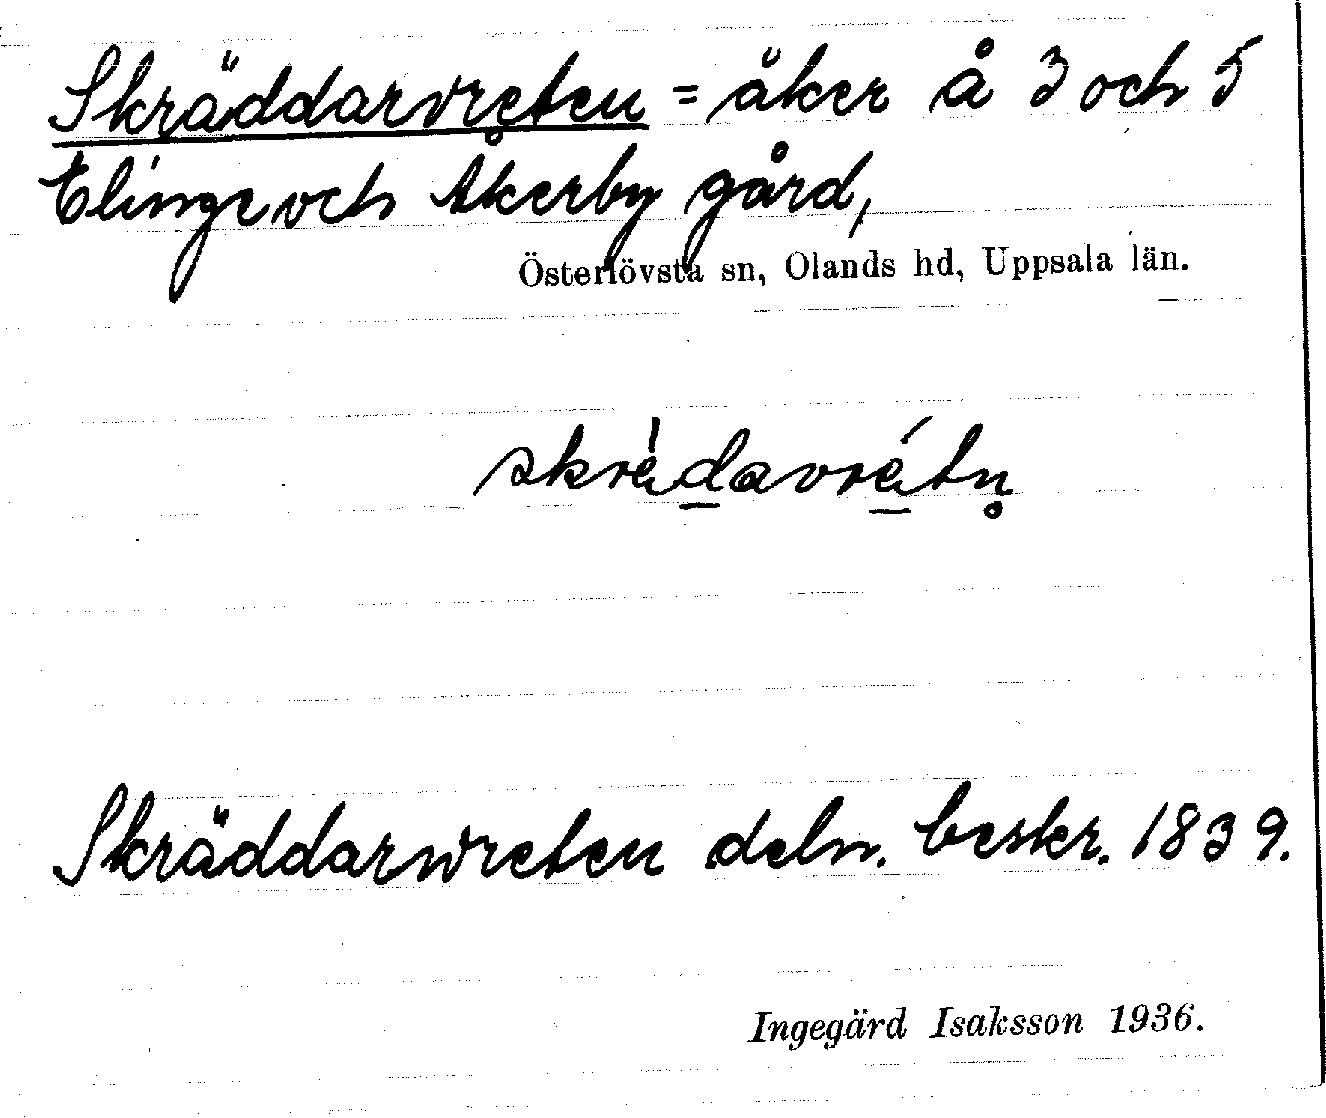 Skräddarvreten = åker å 3 och 5
Elinge och Åkerby gård,
Österlövsta sn, Olands hd, Uppsala län.
skrädavrétn̥
Skräddarwreten deln. beskr. 1839.
Ingegärd Isaksson 1936.